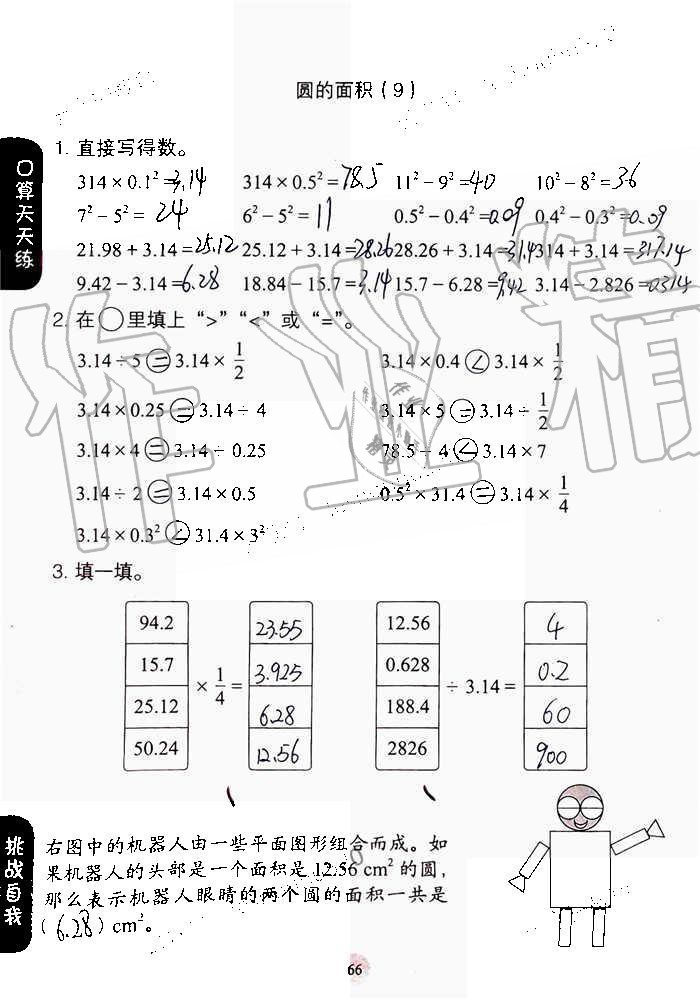 圆的面积(9)
口算天天练
1. 直接写得数。
314×0.1²=3.14 314×0.5²=78.5 11²-9²=40 10²-8²=36
7²-5²=24 6²-5²=11 0.5²-0.4²=0.09 0.4²-0.3²=0.09
21.98+3.14=25.12 25.12+3.14=28.26 28.26+3.14=31.4 314+3.14=317.14
9.42-3.14=6.28 18.84-15.7=3.14 15.7-6.28=9.42 3.14-2.826=0.314
2. 在○里填上“>”“<”或“=”。
3.14÷5=3.14×1/2 3.14×0.4<3.14×1/2
3.14×0.25=3.14÷4 3.14×5=3.14÷1/2
3.14×4=3.14÷0.25 78.5÷4<3.14×7
3.14÷2=3.14×0.5 0.5²×31.4=3.14×1/4
3.14×0.3²<31.4×3²
3. 填一填。
94.2 23.55 12.56 4
15.7 3.925 0.628 0.2
×1/4= ÷3.14=
25.12 6.28 188.4 60
50.24 12.56 2826 900
挑战自我
右图中的机器人由一些平面图形组合而成。如
果机器人的头部是一个面积是12.56 cm²的圆,
那么表示机器人眼睛的两个圆的面积一共是
(6.28)cm²。
66
作业精